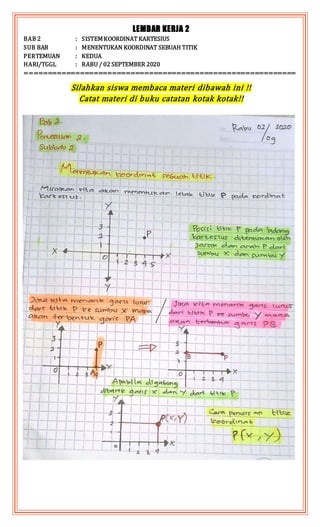 LEMBAR KERJA 2
BAB 2 : SISTEM KOORDINAT KARTESIUS
SUB BAB : MENENTUKAN KOORDINAT SEBUAH TITIK
PERTEMUAN : KEDUA
HARI/TGGL : RABU / 02 SEPTEMBER 2020
Silahkan siswa membaca materi dibawah ini !!
Catat materi di buku catatan kotak kotak!!
Bab 2.
Rabu 02/09 2020
Pertemuan 2.
Subbab 2.
Menentukan koordinat sebuah titik.
Misalkan kita akan menentukan letak titik P pada kordinat
kartesius.
Y
3
2
1
P
X
0
1 2 3 4 5
X
Y
Posisi titik P pada bidang
kartesius ditentukan oleh
jarak dan arah P dari
sumbu X dan sumbu Y
Jika kita menarik garis lurus
dari titik P ke sumbu X maka
akan terbentuk garis PA
Jika kita menarik garis lurus
dari titik P ke sumbu Y maka
akan terbentuk garis PB
Y
3
2
1
P
0
1 2 3
A
X
Y
3
2
1
B
P
0
1 2 3 4
X
Apabila digabung
ditarik garis X dan Y dari titik P
Y
3
2
1
P(X,Y)
0
1 2 3 4
X
Cara penulisan titik
koordinat
P(X,Y)